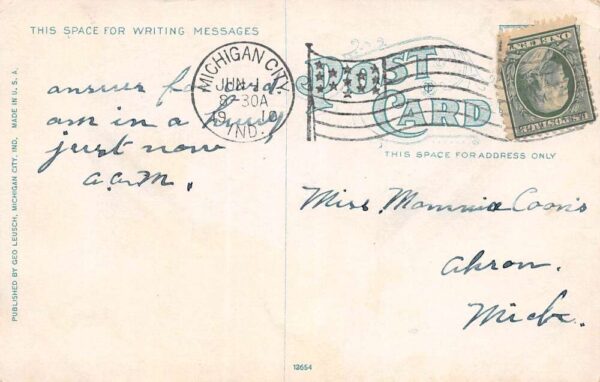 THIS SPACE FOR WRITING MESSAGES
answer for card
am in a hurry
just now
a.a.m.
MICHIGAN CITY,
JUN 1
8-30A
1910
IND.
POST
CARD
THIS SPACE FOR ADDRESS ONLY
Miss. Mommie Coons
Akron.
Mich.
PUBLISHED BY GEO LEUSCH, MICHIGAN CITY, IND. MADE IN U. S. A.
13654
U.S. POSTAGE
ONE CENT